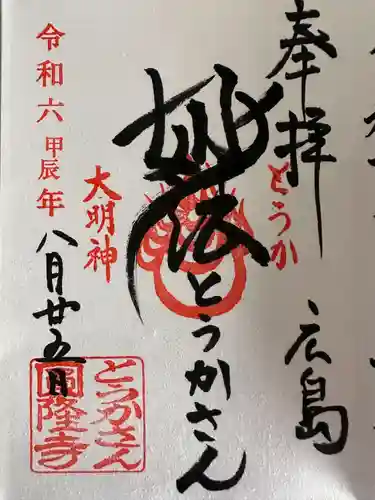 奉拝
広島
とうか
妙法
とうかさん
大明神
令和六甲辰年
八月廿五日
とうかさん
圓隆寺